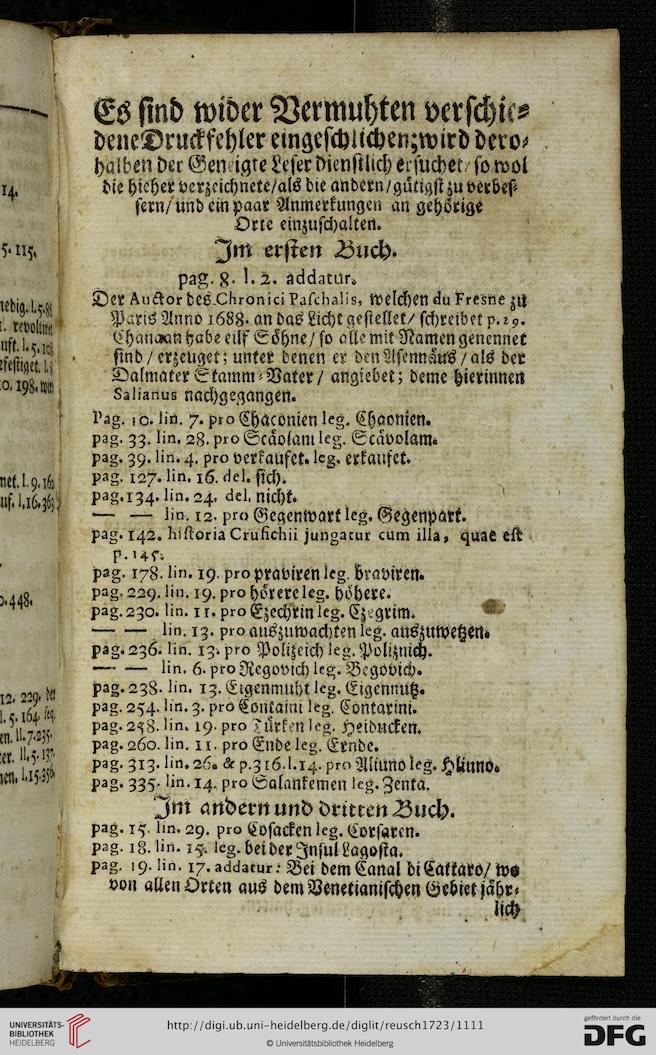 Es sind wider Vermuhten verschie-
dene Druckfehler eingeschlichen; wird dero-
halben der Geneigte Leser dienstlich ersuchet / so wol
die hieher verzeichnete / als die andern / gütigst zu verbes-
sern / und ein paar Anmerkungen an gehörige
Orte einzuschalten.
Im ersten Buch.
pag. 8. l. 2. addatur.
Der Auctor des Chronici Paschalis, welchen du Fresne zu
Paris Anno 1688. an das Licht gestellet / schreibet p. 29.
Chanaan habe eilf Söhne / so alle mit Namen genennet
sind / erzeuget; unter denen er den Asennäus / als der
Dalmater Stamm-Vater / angiebet; deme hierinnen
Salianus nachgegangen.
Pag. 10. lin. 7. pro Chaconien leg. Chaonien.
pag. 33. lin. 28. pro Scäolam leg. Scävolam.
pag. 39. lin. 4. pro verkaufet. leg. erkaufet.
pag. 127. lin. 16. del. sich.
pag. 134. lin. 24. del. nicht.
— — lin. 12. pro Gegenwart leg. Gegenpart.
pag. 142. historia Crusichii jungatur cum illa, quae est
p. 145.
pag. 178. lin. 19. pro praviren leg. braviren.
pag. 229. lin. 19. pro hörere leg. höhere.
pag. 230. lin. 11. pro Ezechrin leg. Czegrim.
— — lin. 13. pro auszuwachten leg. auszuwetzen.
pag. 236. lin. 13. pro Polizeich leg. Poliznich.
— — lin. 6. pro Regovich leg. Begovich.
pag. 238. lin. 13. Eigenmuht leg. Eigennutz.
pag. 254. lin. 3. pro Containi leg. Contarini.
pag. 258. lin. 19. pro Türken leg. Heiducken.
pag. 260. lin. 11. pro Ende leg. Ernde.
pag. 313. lin. 26. & p. 316. l. 14. pro Aliuno leg. Hliuno.
pag. 335. lin. 14. pro Salankemen leg. Zenta.
Im andern und dritten Buch.
pag. 15. lin. 29. pro Cosacken leg. Corsaren.
pag. 18. lin. 15. leg. bei der Insul Lagosta.
pag. 19. lin. 17. addatur: Bei dem Canal di Cattaro / wo
von allen Orten aus dem Venetianischen Gebiet jähr-
lich
14.
5. 115.
0. 198.
12. 229.
UNIVERSITÄTS-
BIBLIOTHEK
HEIDELBERG
http://digi.ub.uni-heidelberg.de/diglit/reusch1723/1111
© Universitätsbibliothek Heidelberg
gefördert durch die
DFG